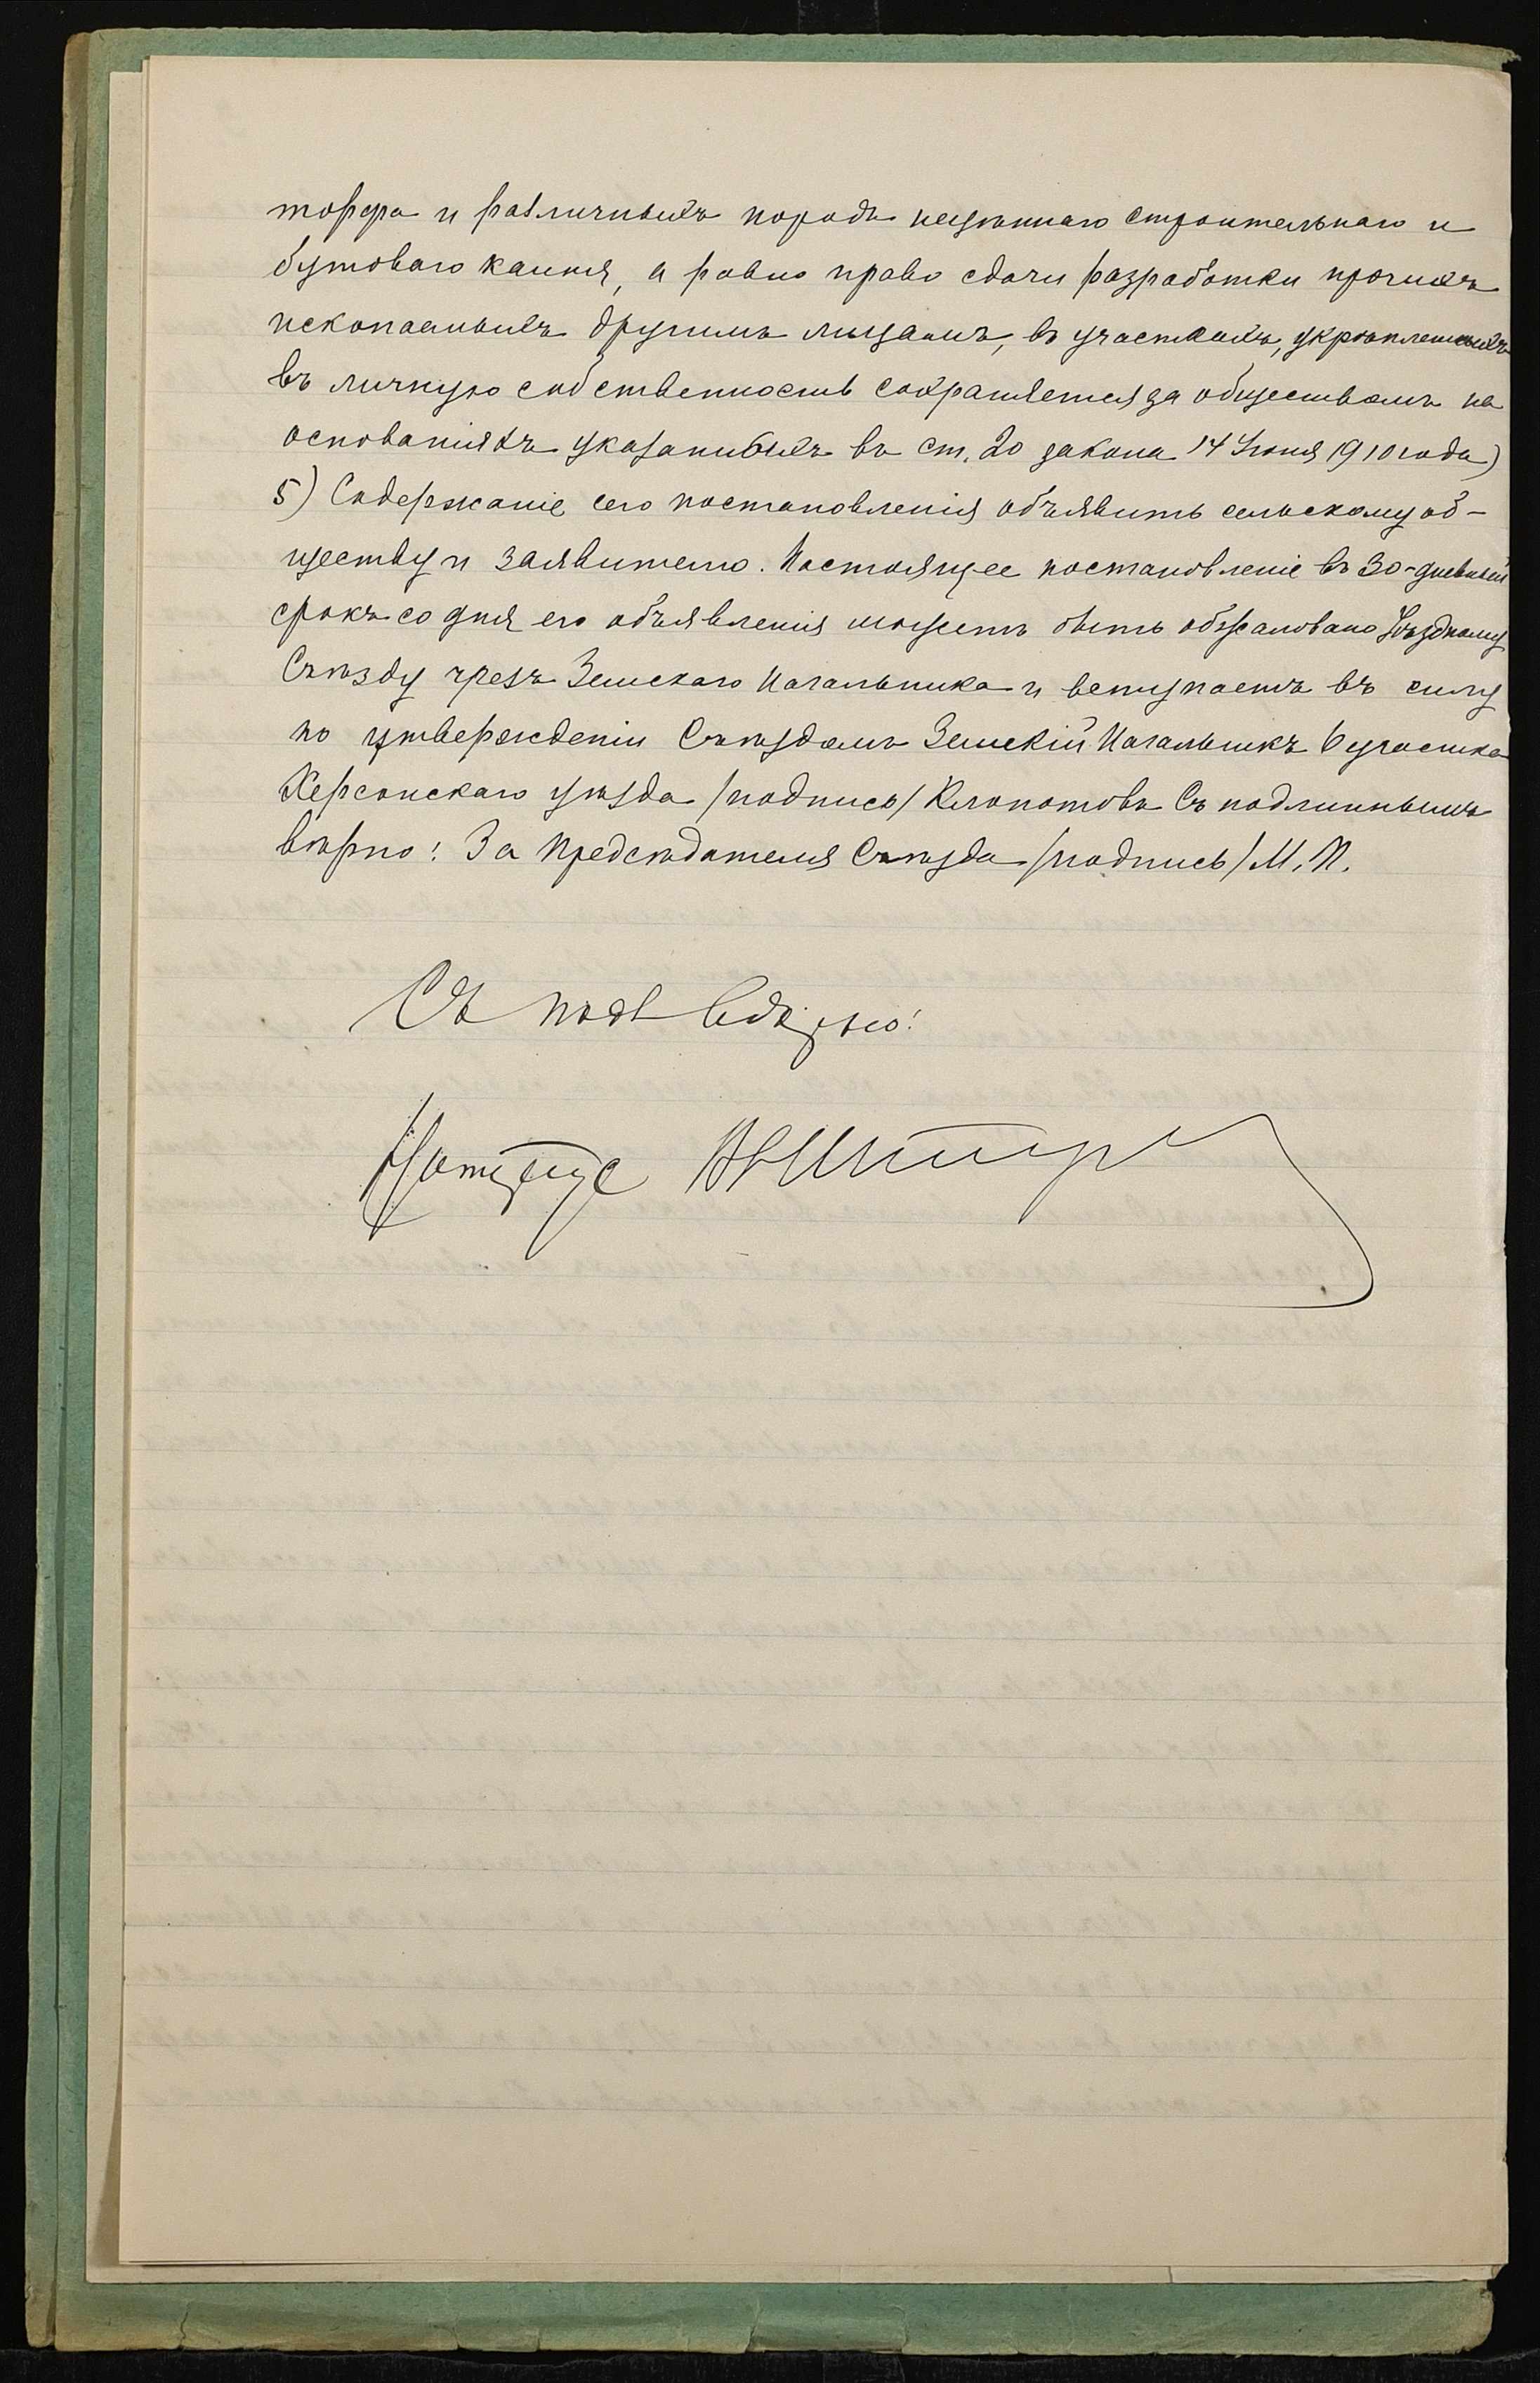 торфа и различныхъ породъ нецѣннаго строительнаго и
бутоваго камня, а равно право сдачи разработки прочихъ
ископаемыхъ другимъ лицамъ, въ участкахъ, укрѣпленныхъ
въ личную собственность сохраняется за обществомъ на
основаніяхъ указанныхъ въ ст. 20 закона 14 Іюня 1910 года)
5) Содержаніе сего постановленія объявить сельскому об-
ществу и заявителю. Настоящее постановленіе въ 30-дневный
срокъ со дня его объявленія можетъ быть обжаловано Уѣздному
Съѣзду чрезъ Земскаго Начальника и вступаетъ въ силу
по утвержденіи Съѣздомъ Земскій Начальникъ 6 участка
Херсонскаго уѣзда /подпись/ Клопотовъ Съ подлиннымъ
вѣрно: За Предсѣдателя Съѣзда /подпись/ М. П.
Съ подл вѣрно!